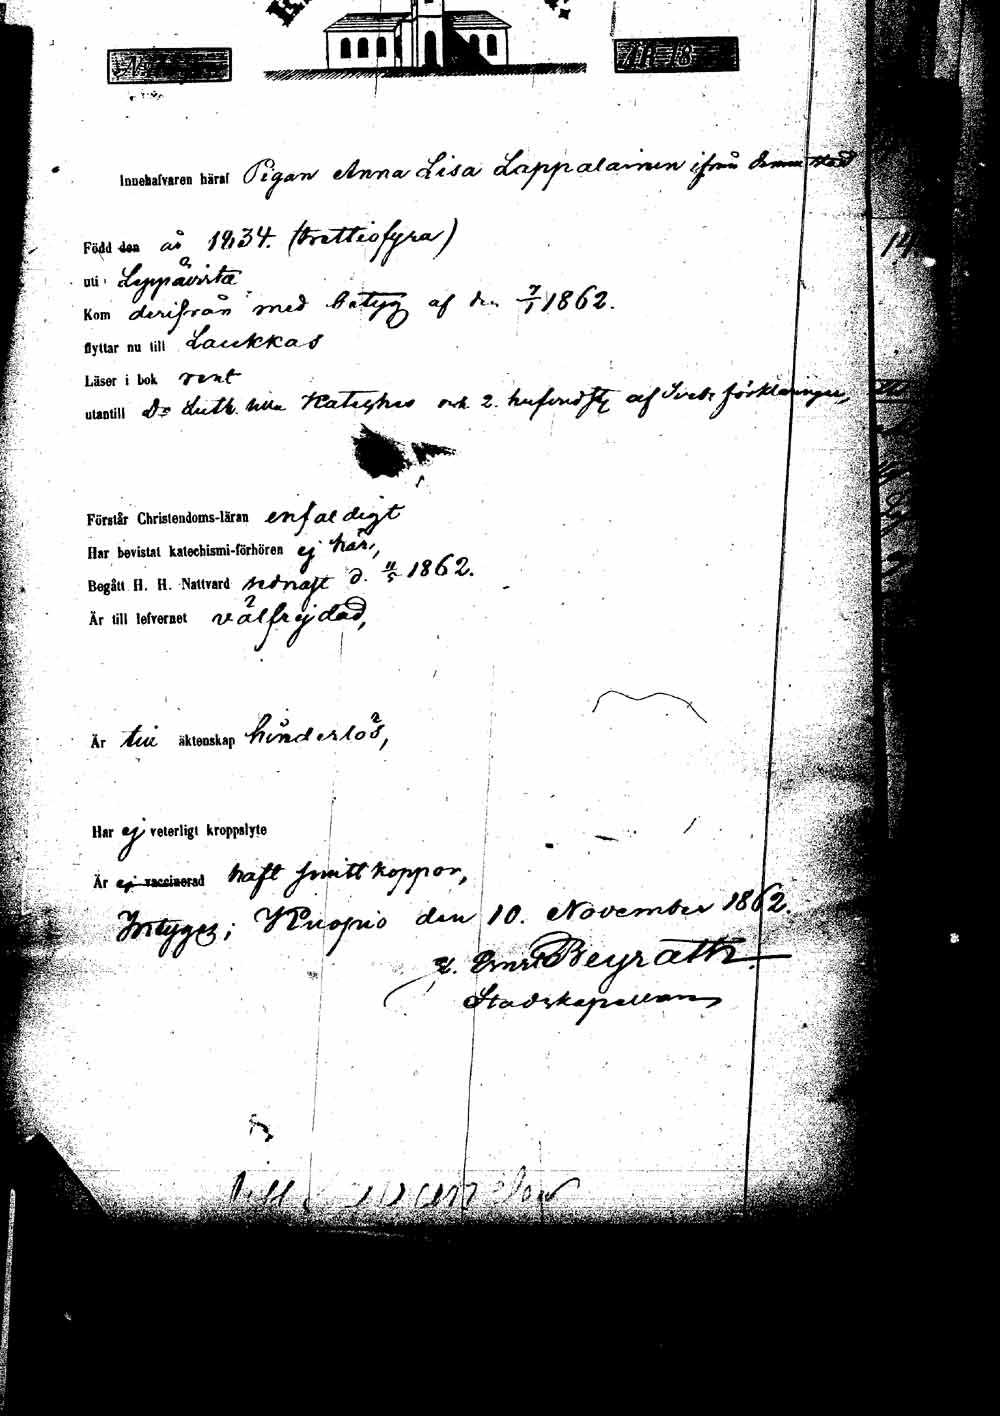 ÅR 18
Innehafvaren häraf Pigan Anna Lisa Lappalainen ifrån denna stad
Född den år 1834. (trettiofyra)
uti Leppävirta
Kom derifrån med betyg af den 7/1 1862.
flyttar nu till Laukkas
Läser i bok rent
utantill Dr Luth. lilla Kateches och 2. hufvudst. af Sveb. förklaringar,
Förstår Christendoms-läran enfaldigt
Har bevistat katechismi-förhören ej här,
Begått H. H. Nattvard sednast d. 11/5 1862.
Är till lefvernet välfrejdad,
Är till äktenskap hinderlös,
Har ej veterligt kroppslyte
Är ej vaccinerad haft smittkoppor,
Intygar; Kuopio den 10. November 1862.
Beyrath.
Stadskapellan